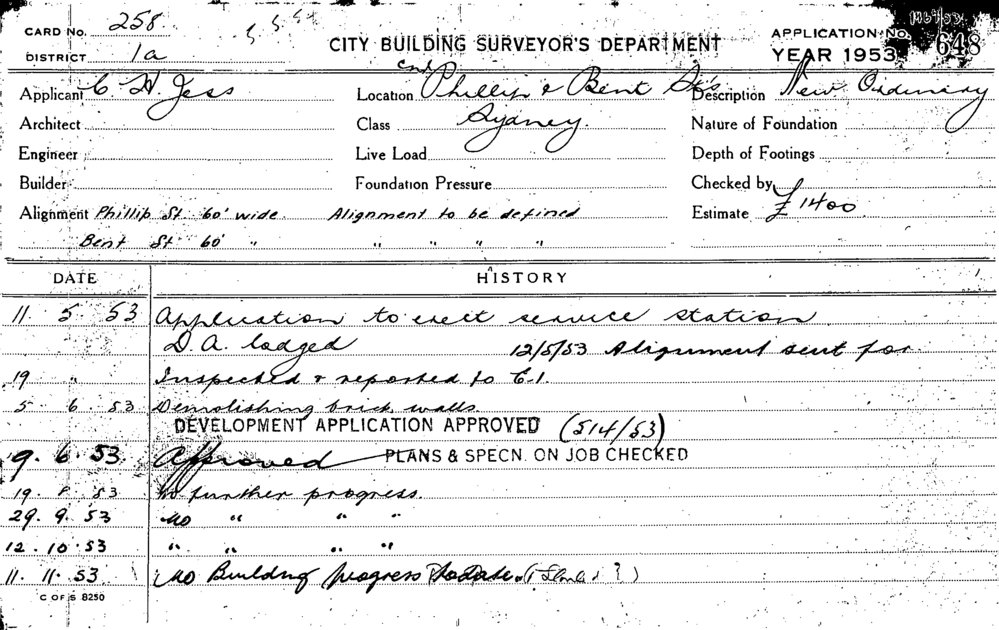 CARD No. 258
DISTRICT 1a
CITY BUILDING SURVEYOR'S DEPARTMENT
APPLICATION No. 648
YEAR 1953
1964/53
Applicant C. H. Jess
Location Cnr Phillip & Bent Sts
Description New Ordinary
Architect
Class Sydney.
Nature of Foundation
Engineer
Live Load
Depth of Footings
Builder
Foundation Pressure
Checked by
Alignment Phillip St. 60' wide Alignment to be defined
Estimate £1400
Bent St 60' " " " " "
DATE HISTORY
11. 5. 53 Application to erect service station
D.A. lodged 12/5/53 Alignment sent for
19 " Inspected & reported to C.I.
5. 6. 53 Demolishing brick walls.
DEVELOPMENT APPLICATION APPROVED (514/53)
9. 6. 53 Approved PLANS & SPECN. ON JOB CHECKED
19. 8. 53 No further progress.
29. 9. 53 No " " "
12. 10. 53 " " " "
11. 11. 53 No Building progress to date.
C OF S 8250